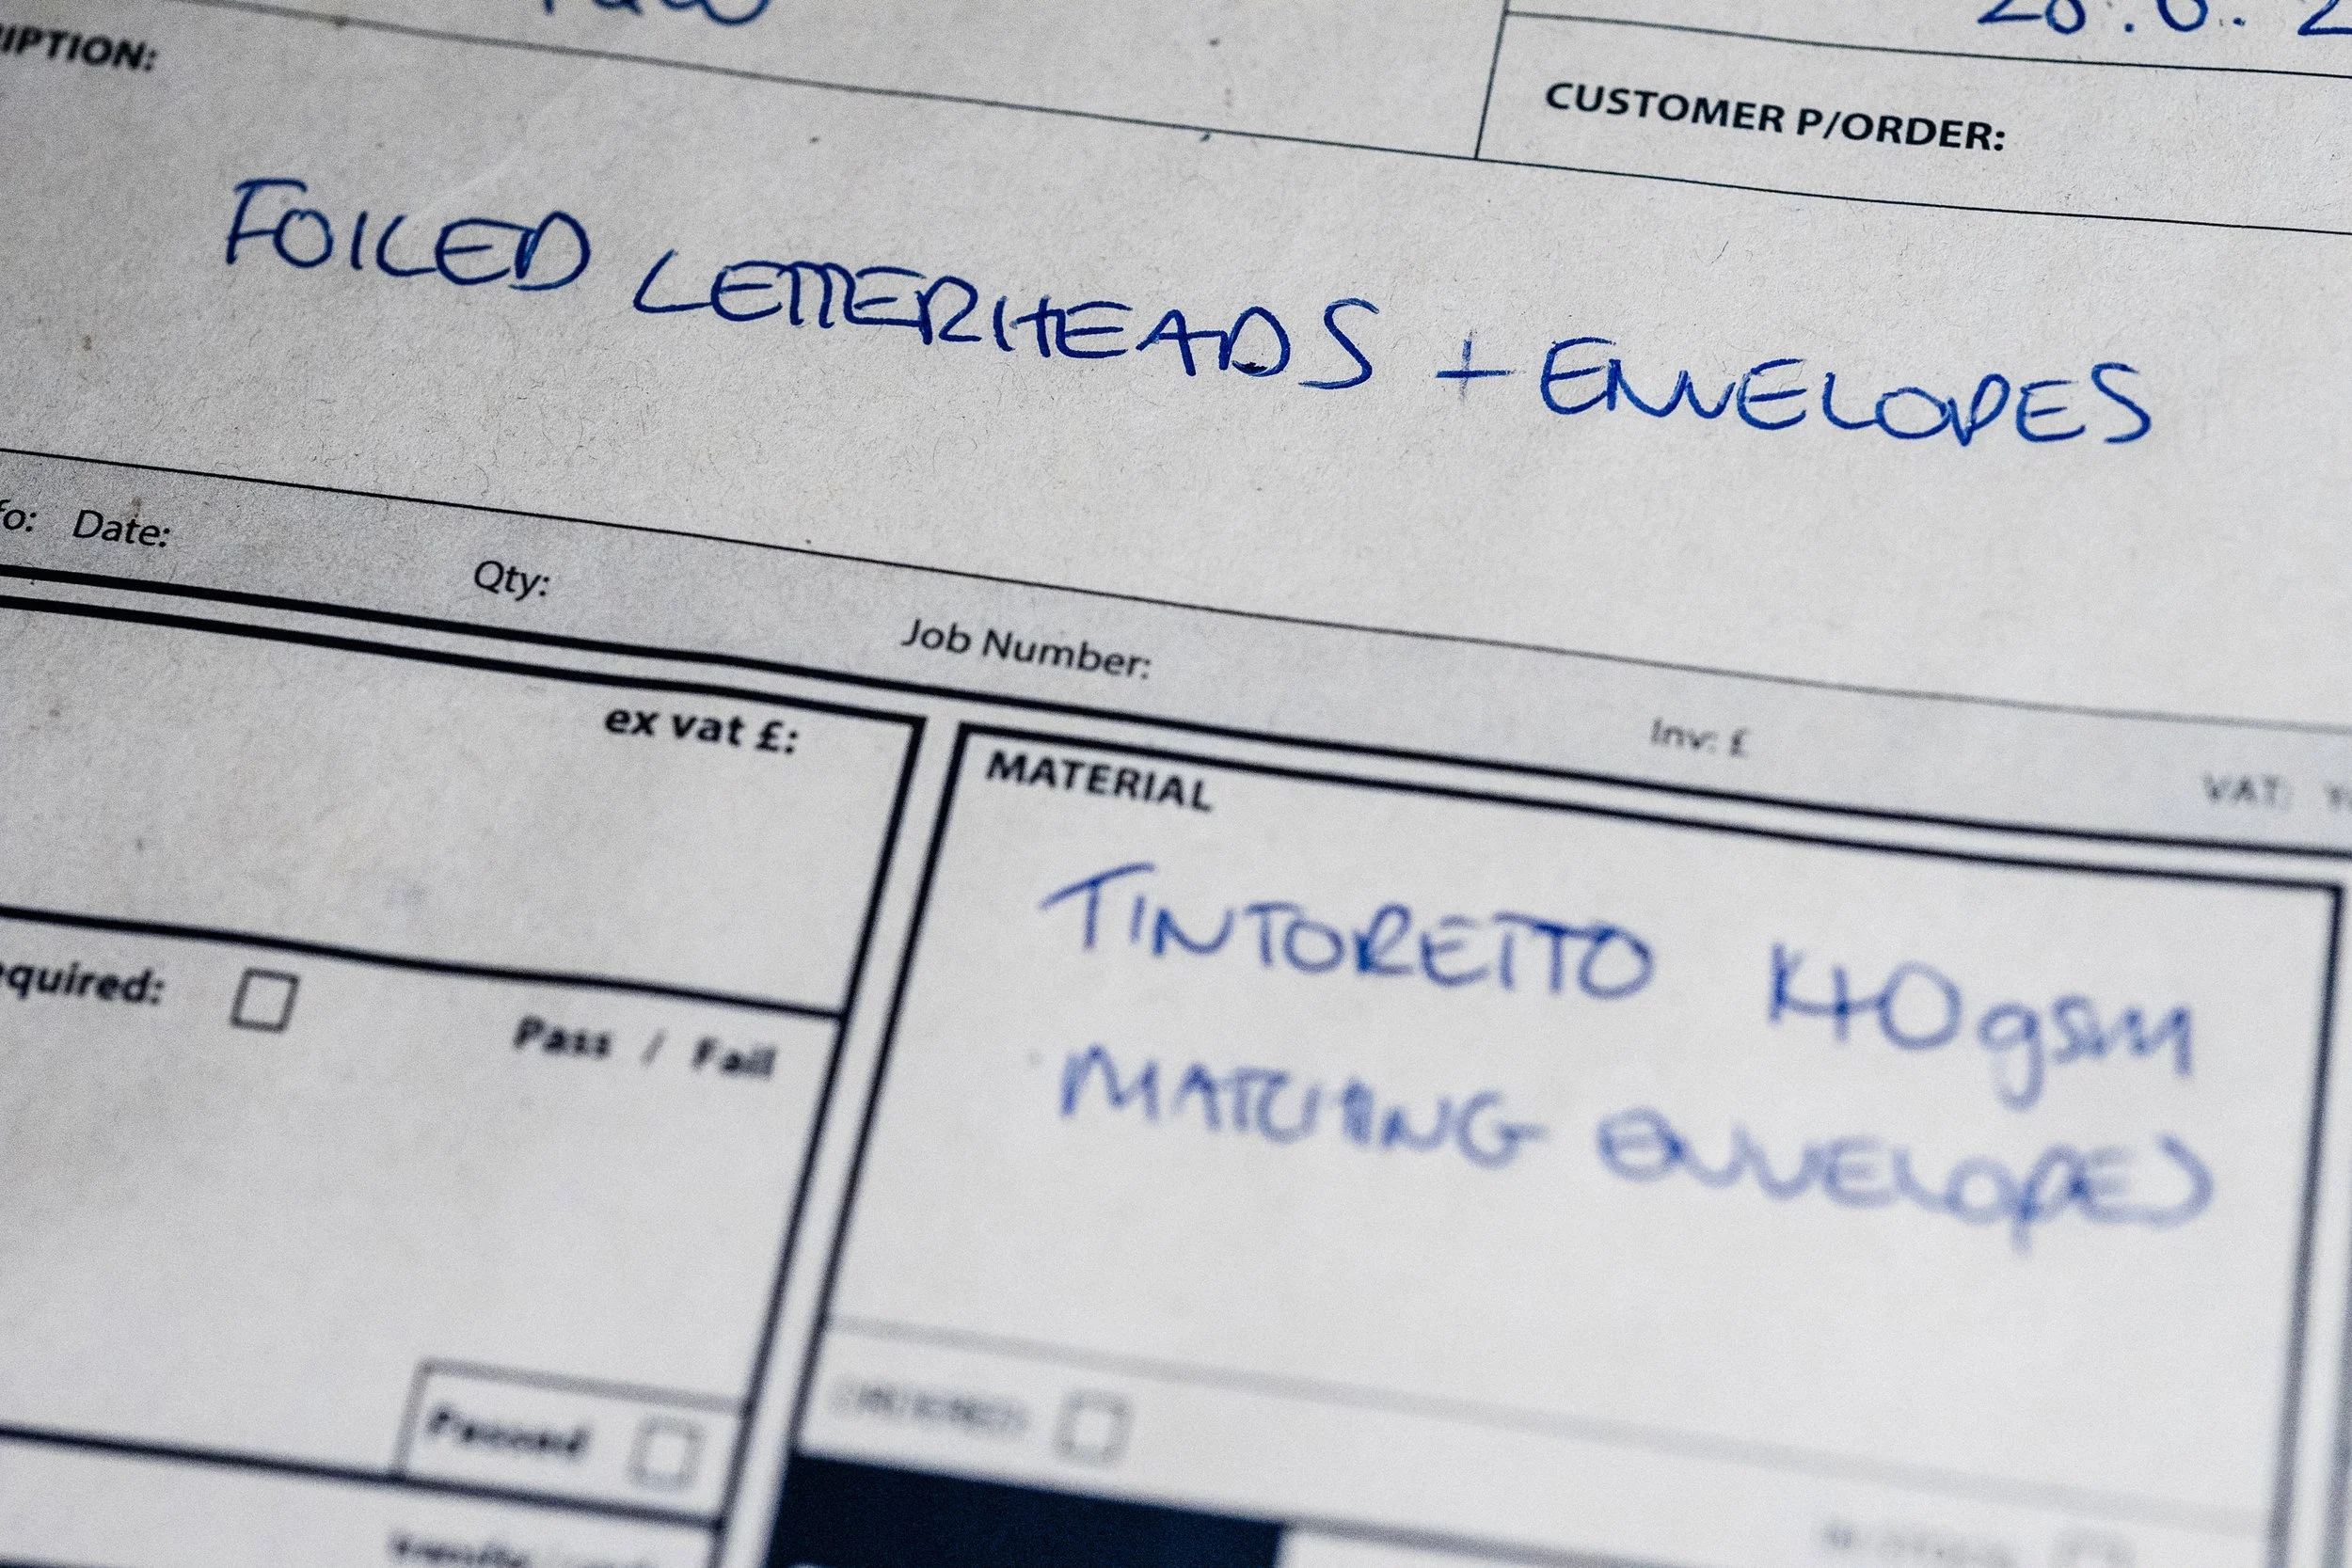 IPTION:
CUSTOMER P/ORDER:
FOILED LETTERHEADS + ENVELOPES
fo: Date: Qty: Job Number: Inv: £ VAT:
ex vat £:
MATERIAL
TINTORETTO 140gsm
MATCHING ENVELOPES
equired: Pass / Fail
ORDERED
Passed